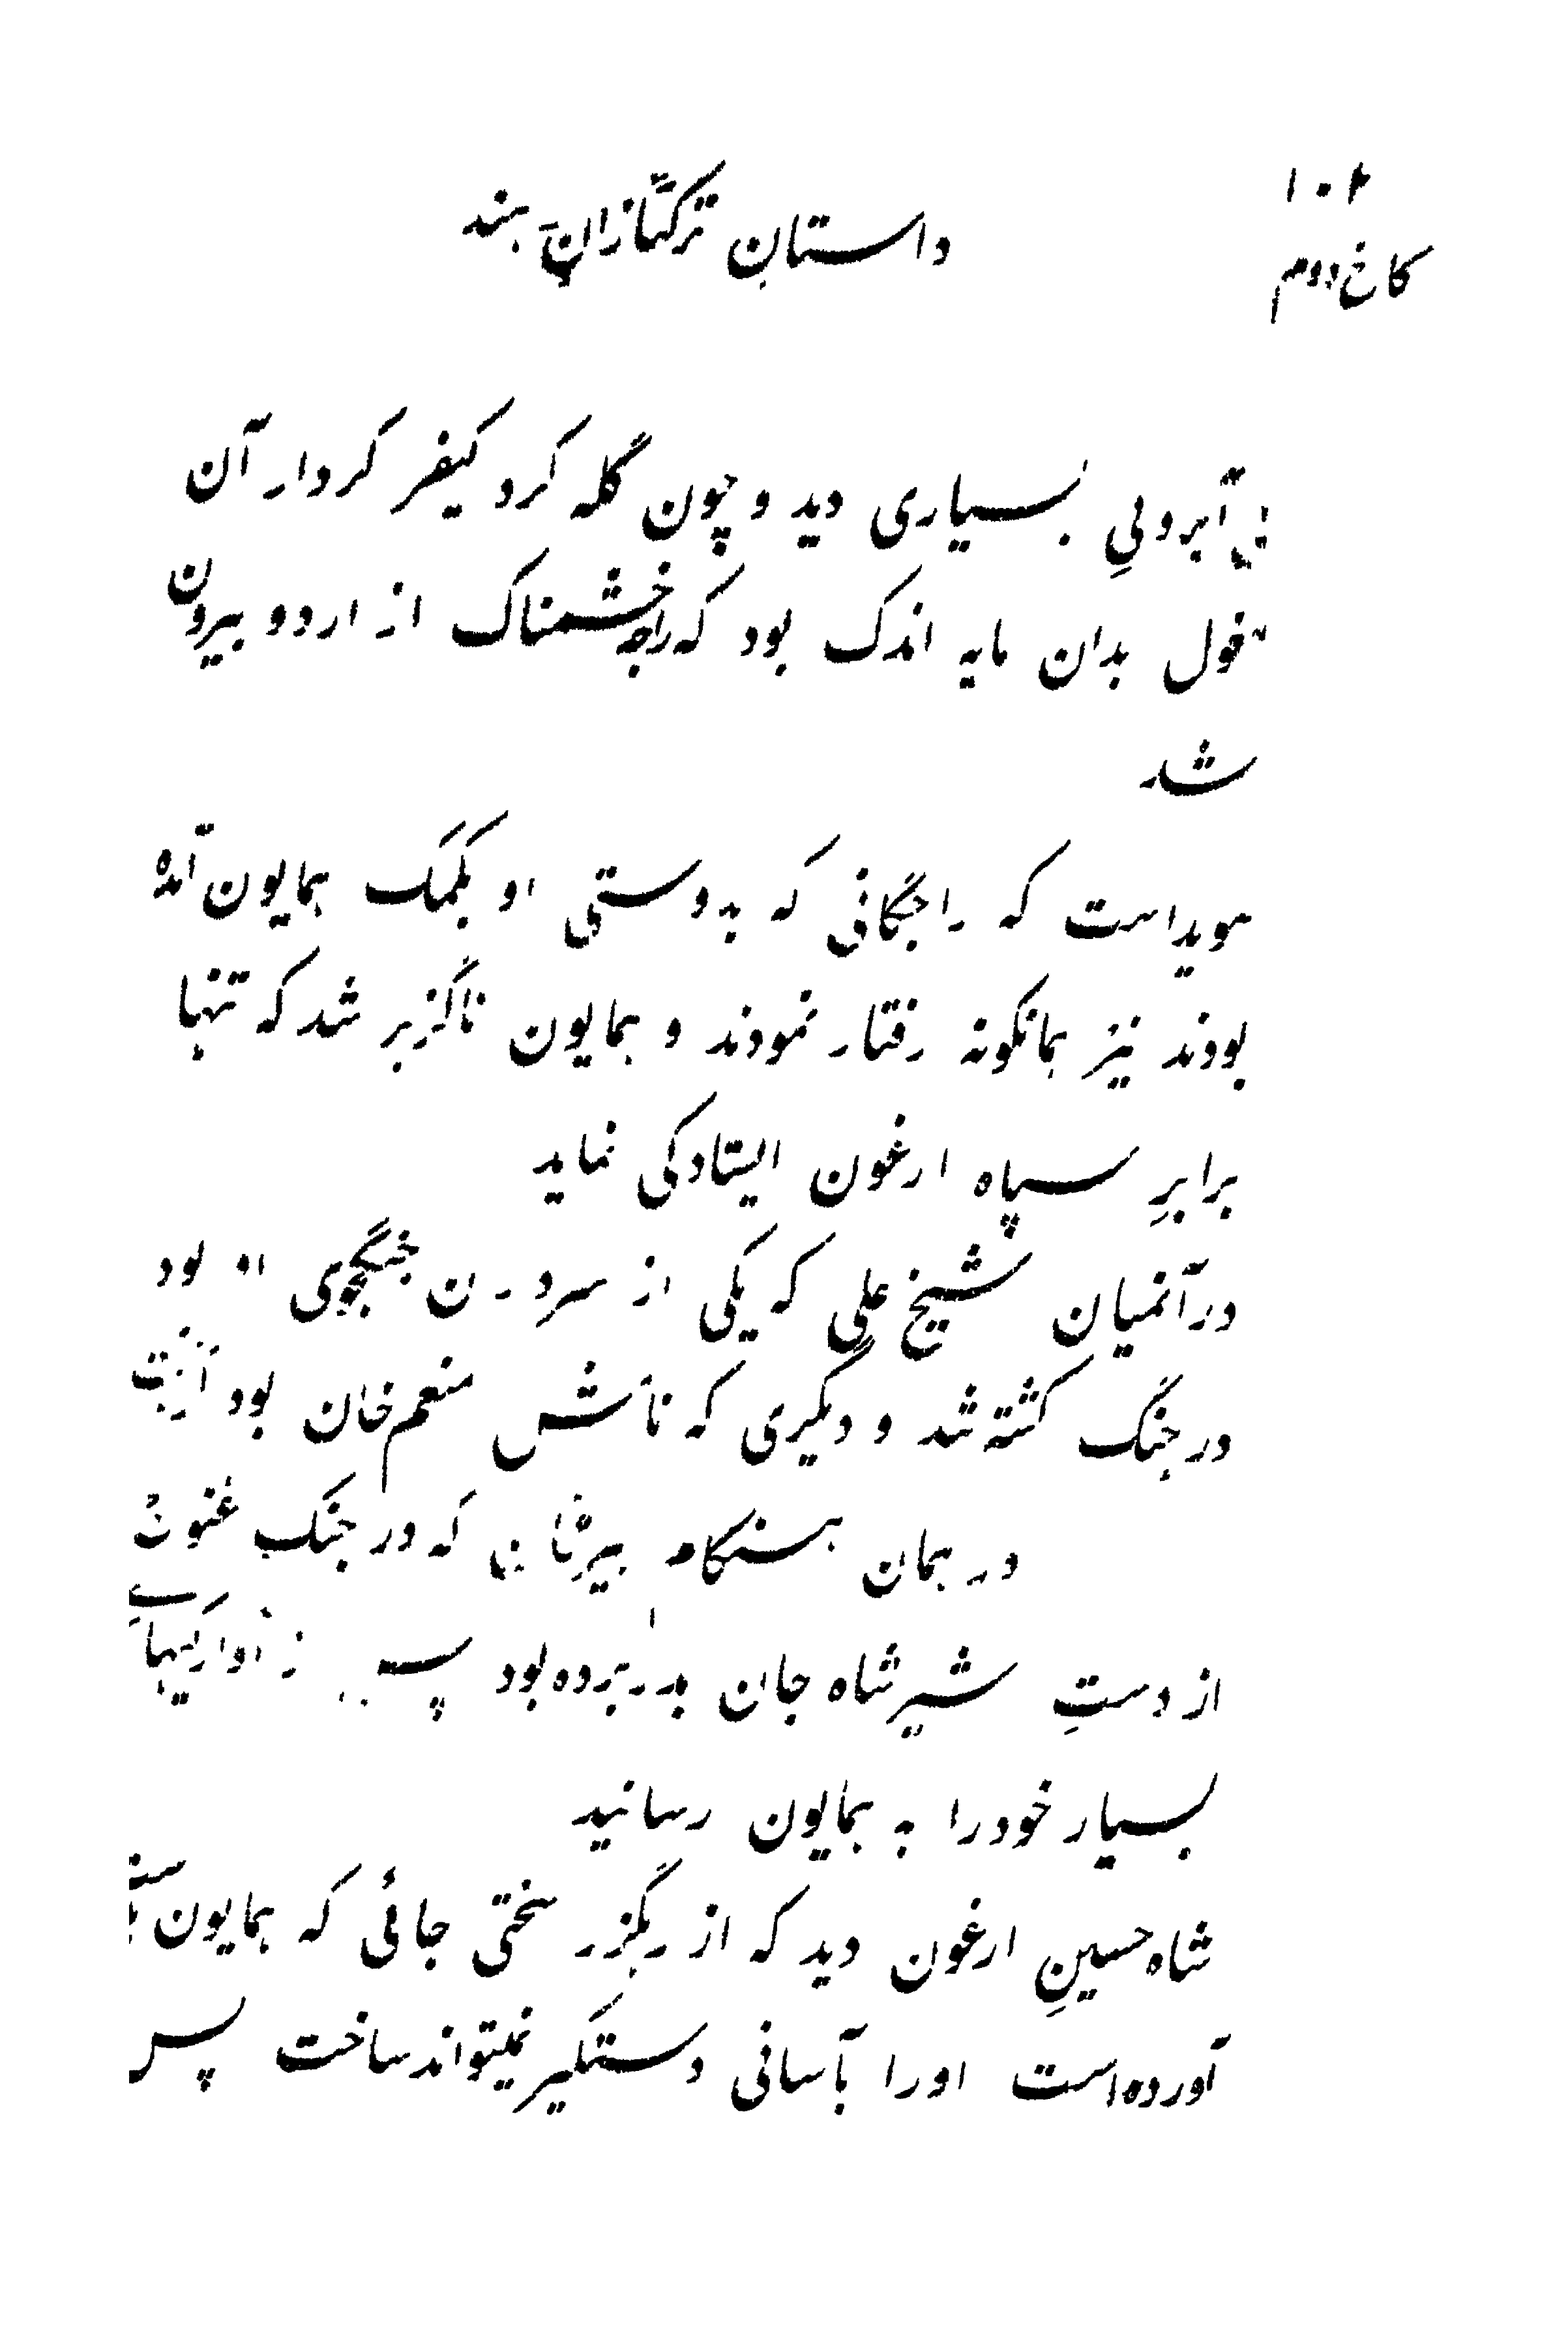 ۱۰۴
داستان ترکتازان هند
کاخ دوم
بی آبرویِ بسیاری دید و چون گله کرد کیفر کردار آن
مغول بدان مایه اندک بود که راجه خشمناک از اردو بیرون
شد
هویداست که راجگانی که بدوستی او بکمک همایون آمده
بودند نیز همانگونه رفتار نمودند و همایون ناگزیر شد که تنها
برابرِ سپاه ارغون ایستادگی نماید
در آنمیان شیخ علی که یکی از سرد ر ن جنگجوی او بود
در جنگ کشته شد و دیگری که نامش منعم خان بود
در همان هنگام که در جنگ
از دستِ شیر شاه جان بدر برده بود پس از آوارگیهای
بسیار خود را به همایون رسانید
شاه حسینِ ارغون دید که از رهگزر سختی جائی که همایون
آورده است او را بآسانی دستگیر نمیتواند ساخت پس